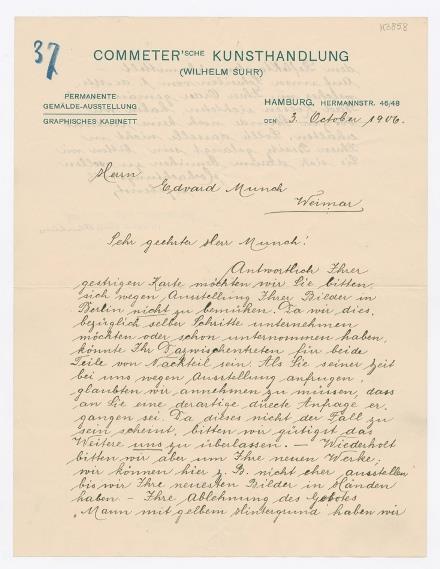 H3858
37
COMMETER'SCHE KUNSTHANDLUNG
(WILHELM SUHR)
PERMANENTE
GEMÄLDE-AUSSTELLUNG
GRAPHISCHES KABINETT
HAMBURG, HERMANNSTR. 46/48
DEN 3. October 1906.
Herrn
Edvard Munch
Weimar
Sehr geehrter Herr Munch!
Antwortlich Ihrer
gestrigen Karte möchten wir Sie bitten,
sich wegen Ausstellung Ihrer Bilder in
Berlin nicht zu bemühen. Da wir dies,
bezüglich selber Schritte unternehmen
möchten oder schon unternommen haben,
könnte Ihr Dazwischentreten für beide
Teile von Nachteil sein. Als Sie seiner Zeit
bei uns wegen Ausstellung anfrugen,
glaubten wir annehmen zu müssen, dass
an Sie eine derartige directe Anfrage er,
gangen sei. Da dieses nicht der Fall zu
sein scheint, bitten wir gütigst das
Weitere uns zu überlassen. — Wiederholt
bitten wir aber um Ihre neuen Werke;
wir können hier z. B. nicht eher ausstellen
bis wir Ihre neuesten Bilder in Händen
haben – Ihre Ablehnung des Gebotes
„Mann mit gelbem Hintergrund haben wir